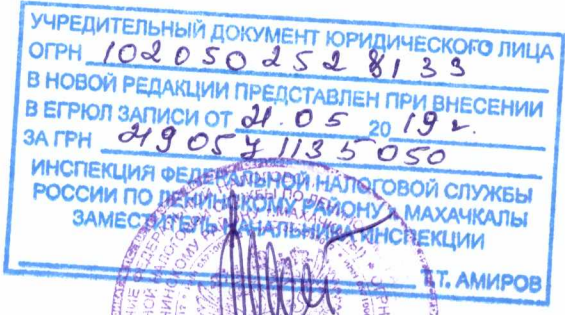 УЧРЕДИТЕЛЬНЫЙ ДОКУМЕНТ ЮРИДИЧЕСКОГО ЛИЦА
ОГРН 1020502528133
В НОВОЙ РЕДАКЦИИ ПРЕДСТАВЛЕН ПРИ ВНЕСЕНИИ
В ЕГРЮЛ ЗАПИСИ ОТ 21.05 2019 г.
ЗА ГРН 2190571135050
ИНСПЕКЦИЯ ФЕДЕРАЛЬНОЙ НАЛОГОВОЙ СЛУЖБЫ
РОССИИ ПО ЛЕНИНСКОМУ РАЙОНУ Г. МАХАЧКАЛЫ
ЗАМЕСТИТЕЛЬ НАЧАЛЬНИКА ИНСПЕКЦИИ
Т.Т. АМИРОВ